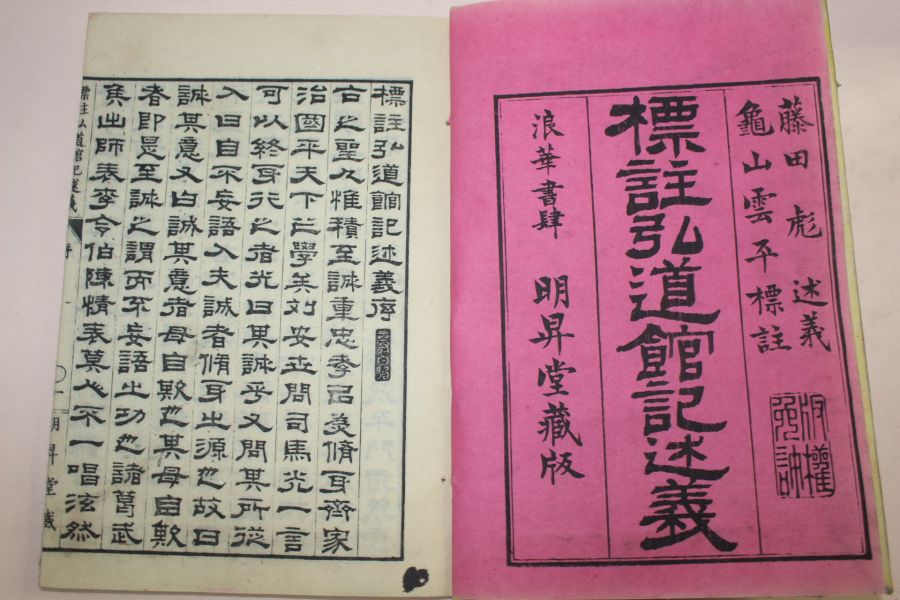 藤田彪 述義
龜山雲平標註
版權免許
標註弘道館記述義
浪華書肆 明昇堂藏版
標註弘道館記述義序
古之聖人惟積至誠重忠孝已矣脩身齊家
治國平天下之學矣劉安世問司馬光一言
可以終身行之者光曰其誠乎又問其所從
入曰自不妄語入夫誠者脩身之源也故曰
誠其意又曰誠其意者毋自欺也其毋自欺
者即是至誠之謂而不妄語之功也諸葛武
侯出師表李令伯陳情表莫不一唱泫然
標註弘道館記述義 序 一 明昇堂藏